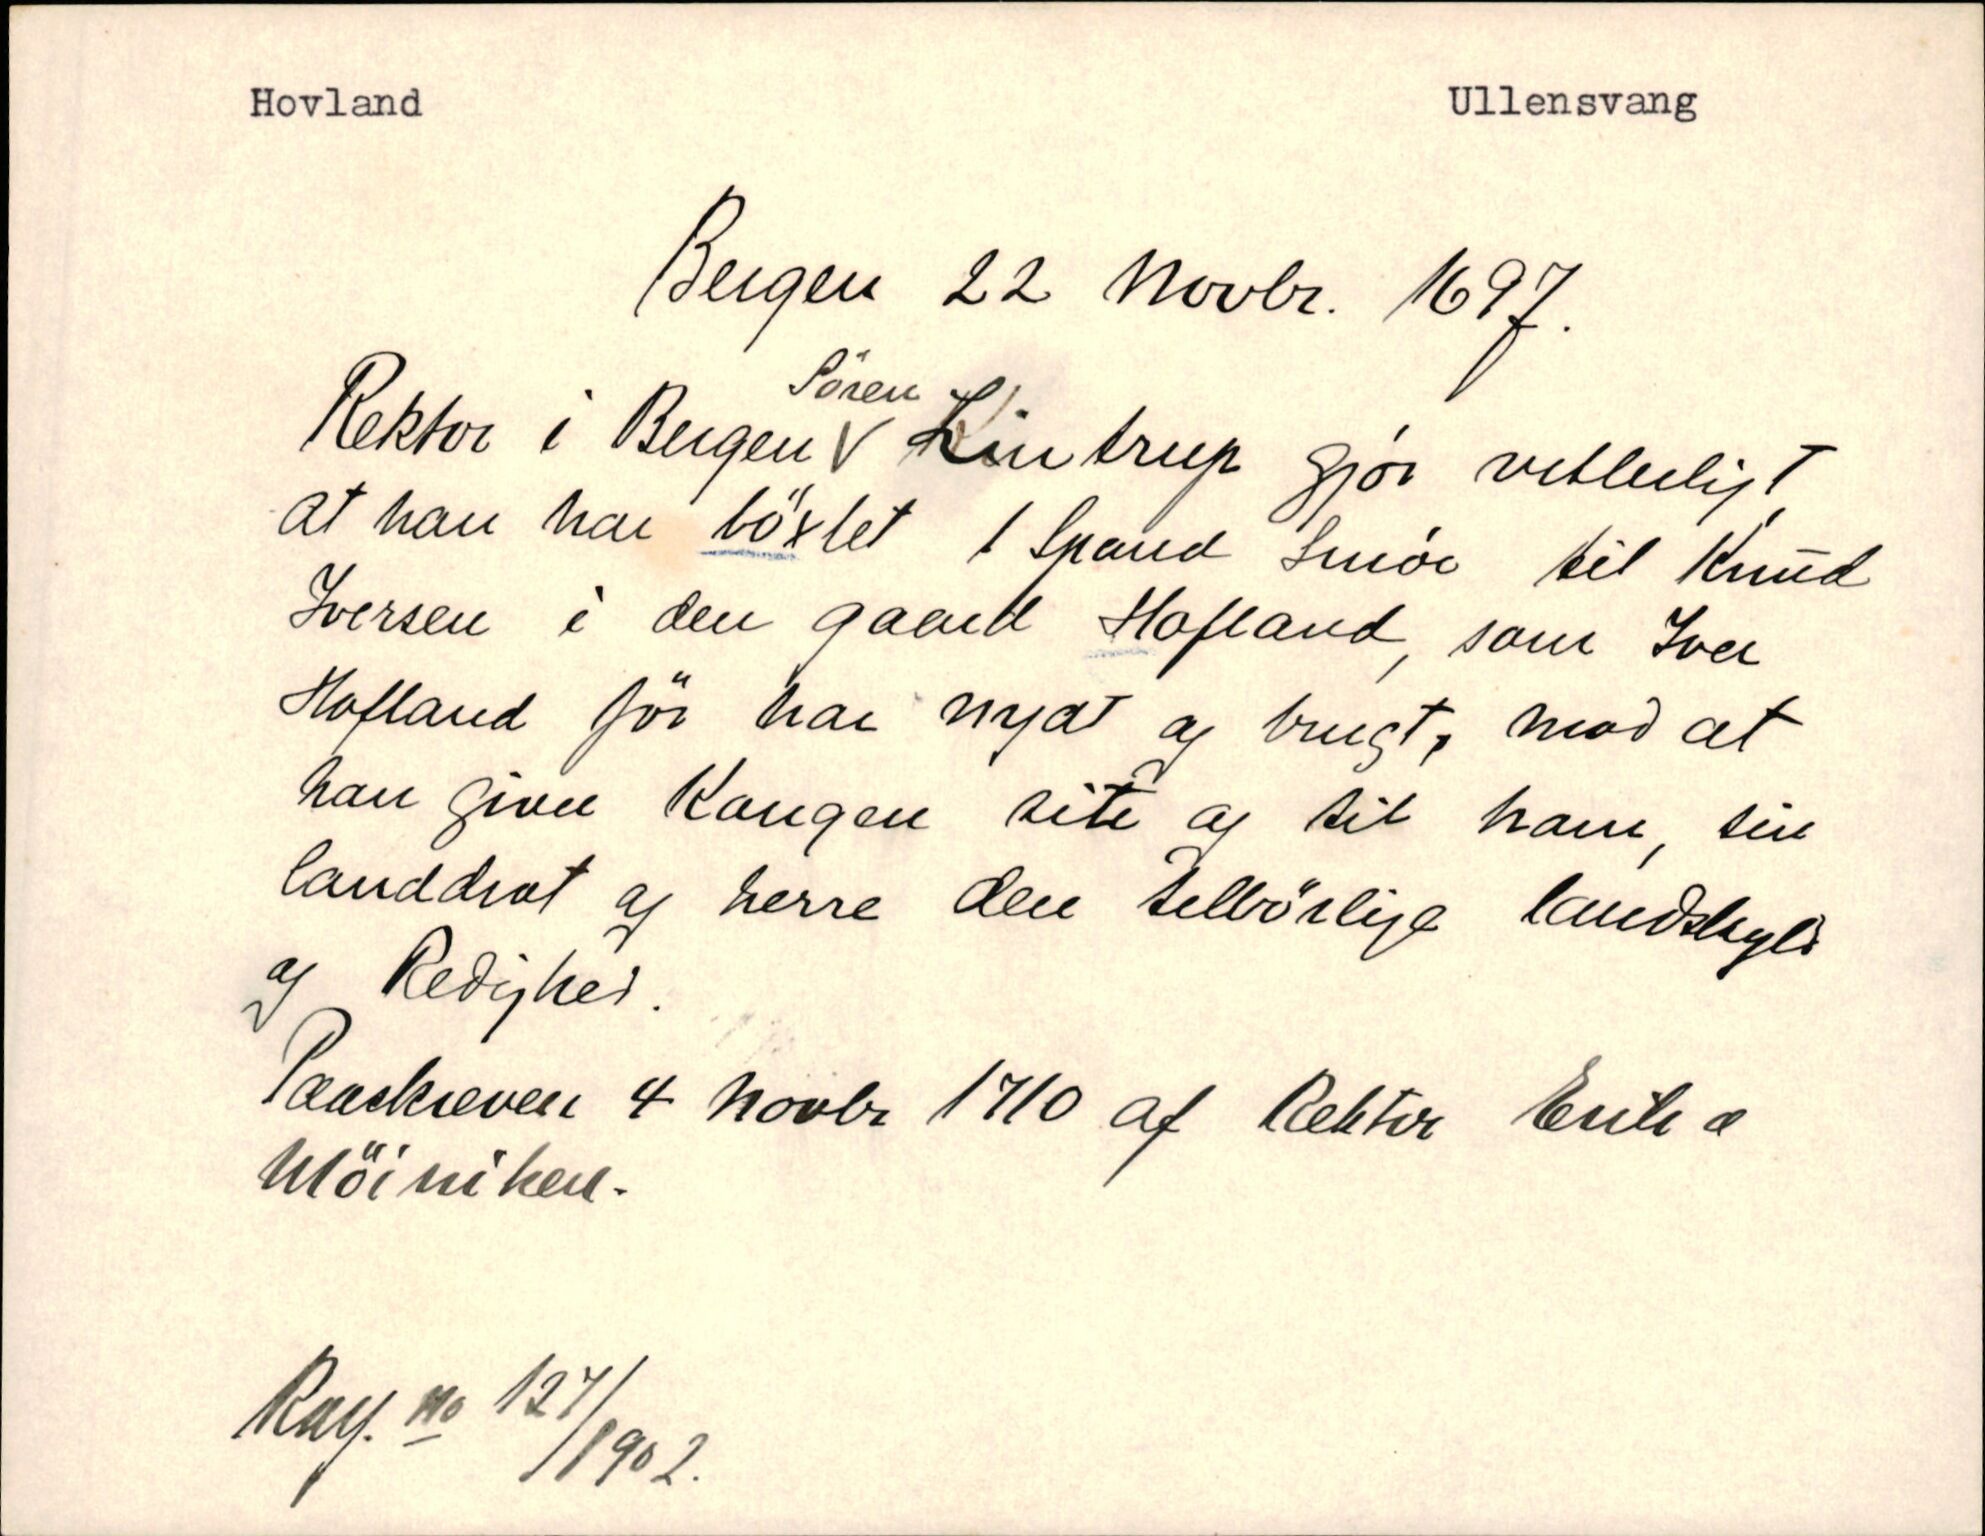 Hovland Ullensvang
Bergen 22 Novbr. 1697.
Rektor i Bergen Sören Lintrup gjör vitterligt
at han har böxlet 1 Spand Smör til Knud
Iversen i den gaard Hofland, som Iver
Hofland för har nydt og brugt, mod at
han giver Kongen sit og til ham, sin
landdrot og herre den tilbörlige landskyld
og Redighed.
Paaskreven 4 Novbr 1710 af Rektor Erik a
Möiniken.
Kay. no 127/1902.